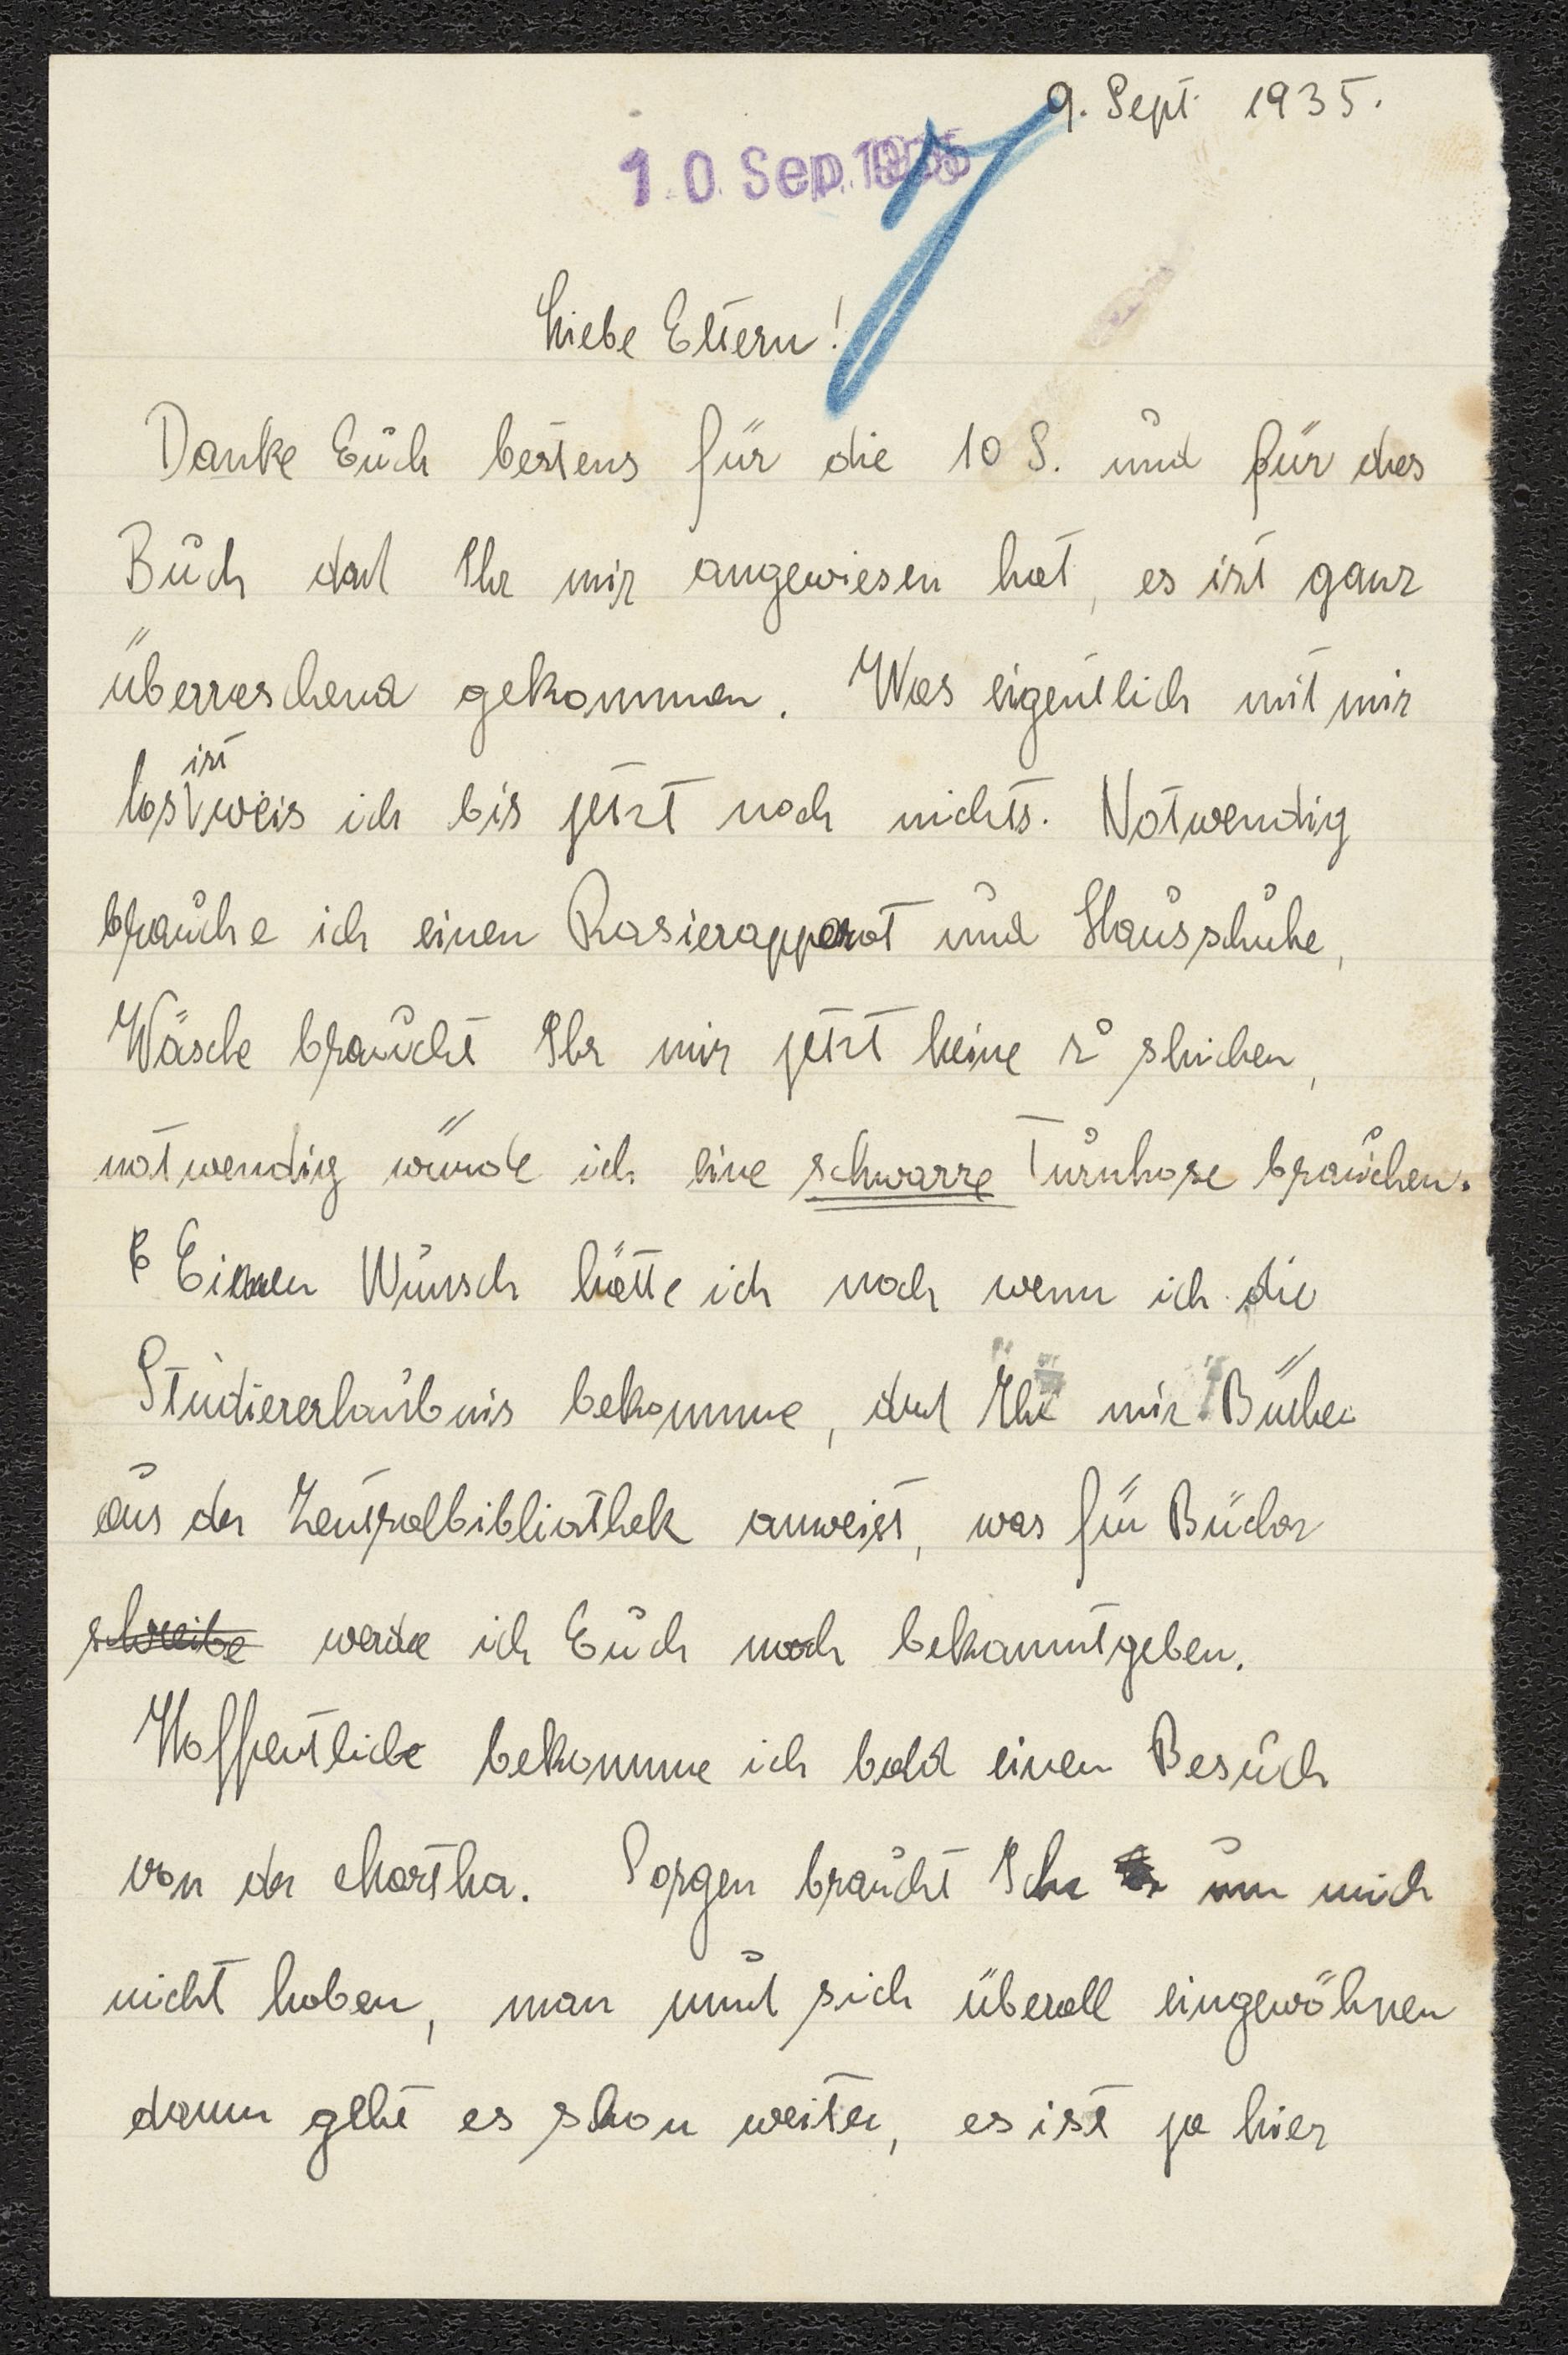 9. Sept. 1935.
10. Sep. 1935
Liebe Eltern!
Danke Euch bestens für die 10 S. und für das
Buch daß Ihr mir angewiesen hat, es ist ganz
überraschend gekommen. Was eigentlich mit mir
ist
los weis ich bis jetzt noch nichts. Notwendig
brauche ich einen Rasierapparat und Hausschuhe,
Wäsche braucht Ihr mir jetzt keine zu schicken,
notwendig würde ich eine schwarze Turnhose brauchen.
Einen Wunsch hätte ich noch wenn ich die
Studiererlaubnis bekomme, daß Ihr mir Bücher
aus der Zentralbibliothek anweist, was für Bücher
schreibe werde ich Euch noch bekanntgeben.
Hoffentlich bekomme ich bald einen Besuch
von der Martha. Sorgen braucht Ihr um mich
nicht haben, man muß sich überall eingewöhnen
dann geht es schon weiter, es ist ja hier